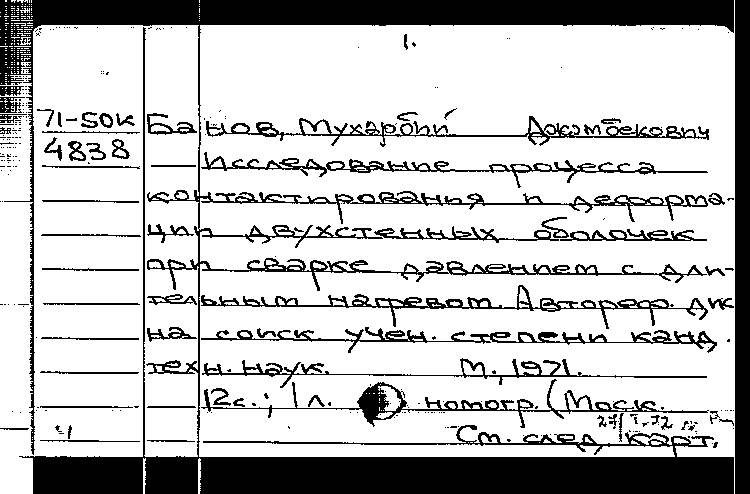 1.
71-50к Банов, Мухарбий Джамбекович
4838 Исследование процесса
контактирования и деформа-
ции двухстенных оболочек
при сварке давлением с дли-
тельным нагревом. Автореф. дис.
на соиск. учен. степени канд.
техн. наук. М., 1971.
12с.; 1 л. номогр. (Моск.
Ч См. след. карт.